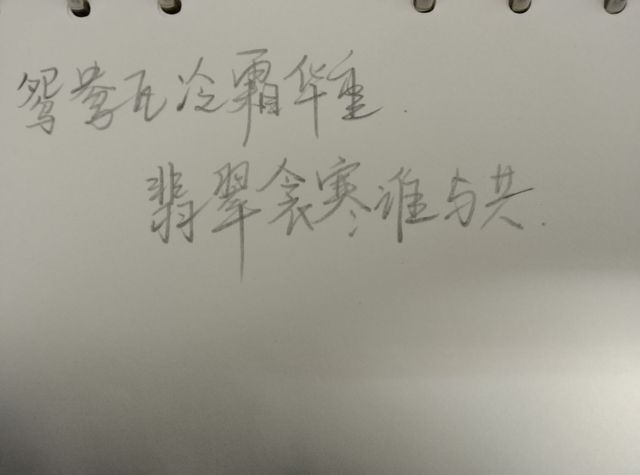 鸳鸯瓦冷霜华重.
翡翠衾寒谁与共.